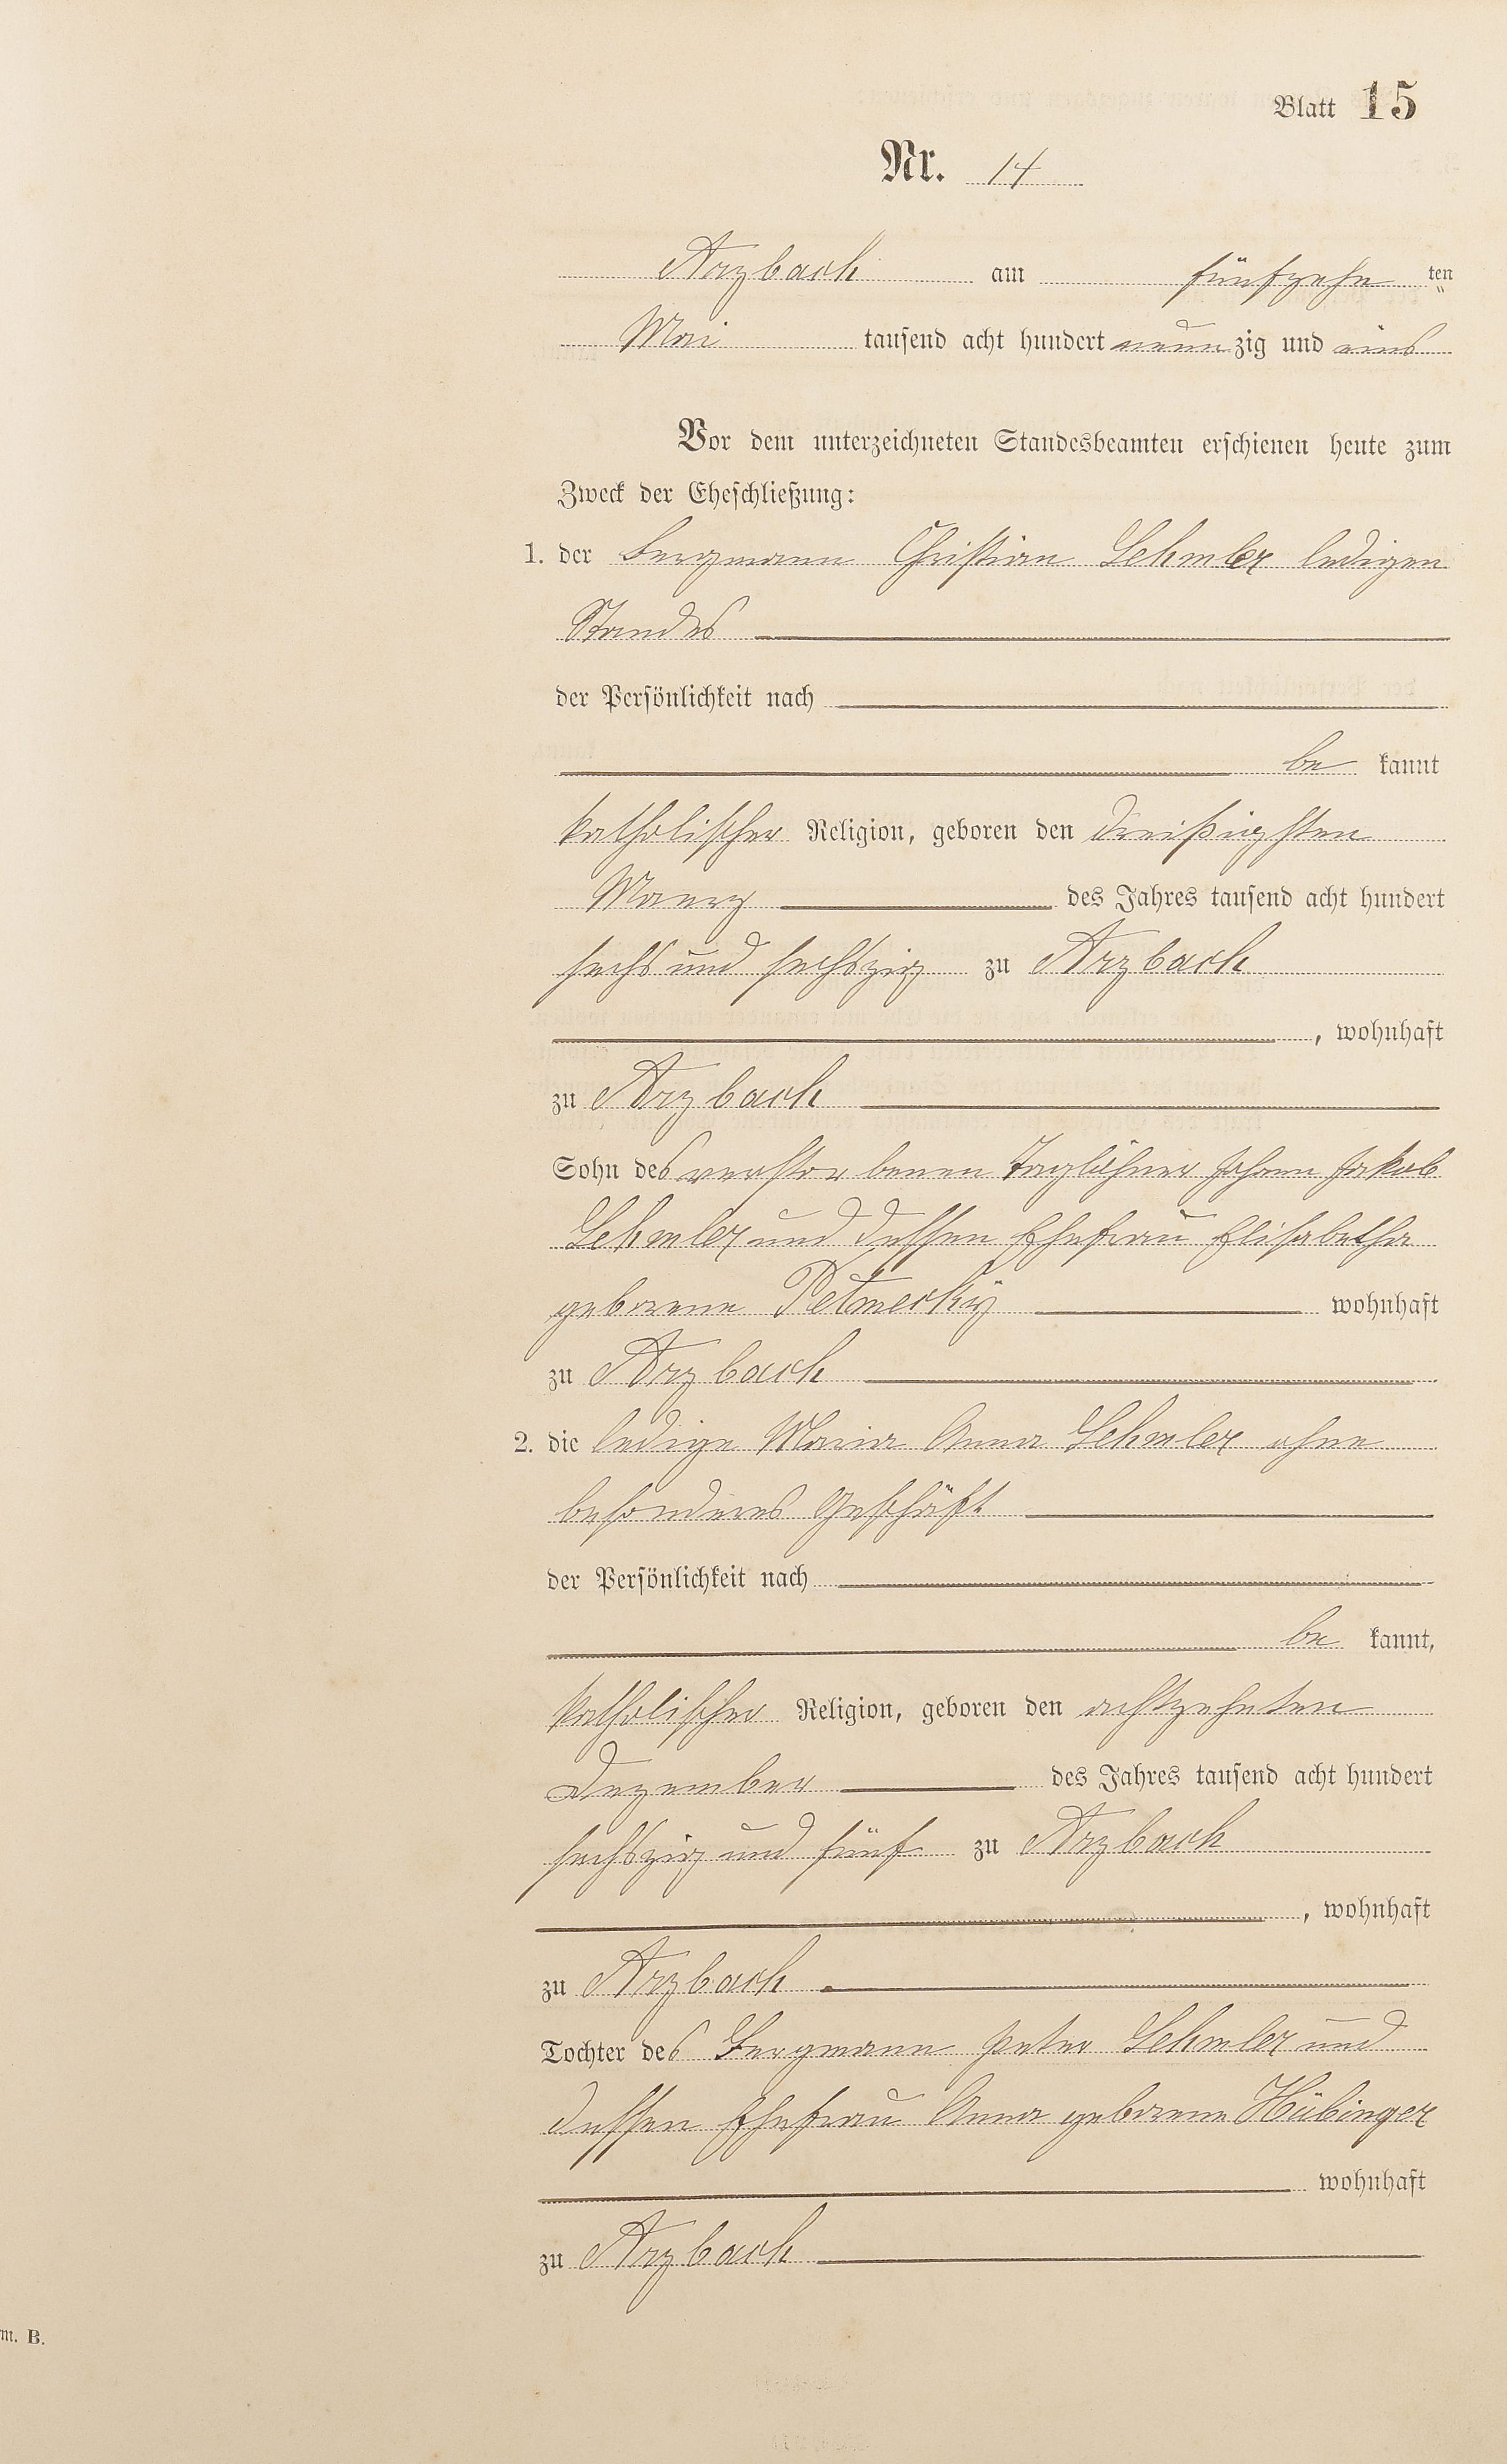 Blatt 15
Nr. 14
Arzbach am fünfzehn ten
Mai tausend acht hundert neun zig und eins
Vor dem unterzeichneten Standesbeamten erschienen heute zum
Zweck der Eheschließung:
1. der Bergmann Christian Lehmler ledigen
Standes
der Persönlichkeit nach
be kannt
katholischer Religion, geboren den dreißigsten
Maerz des Jahres tausend acht hundert
sechs und sechszig zu Arzbach
, wohnhaft
zu Arzbach
Sohn des verstorbenen Taglöhner Johann Jakob
Lehmler und dessen Ehefrau Elisabetha
geborene Petmecky wohnhaft
zu Arzbach
2. die ledige Maria Anna Lehmler ohne
besonderes Geschäft
der Persönlichkeit nach
be kannt,
katholischer Religion, geboren den achtzehnten
Dezember des Jahres tausend acht hundert
sechszig und fünf zu Arzbach
, wohnhaft
zu Arzbach
Tochter des Bergmann Peter Lehmler und
dessen Ehefrau Anna geborene Hübinger
wohnhaft
zu Arzbach
m. B.